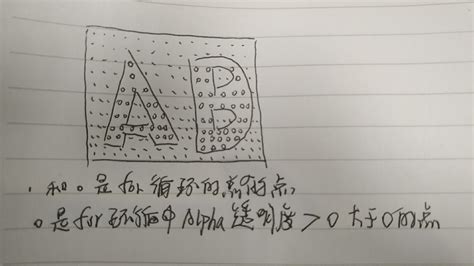 AB
· 和 o 是 for 循环的 的点,
o 是 for 环循中 Alpha 透明度 > 0 大于0的点